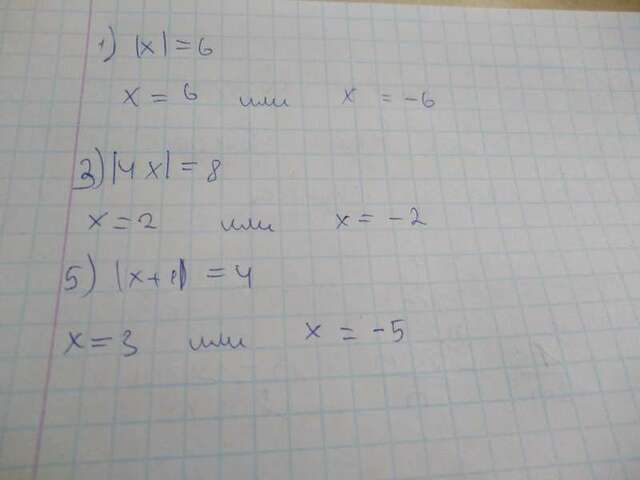 1) |x| = 6
x = 6 или x = -6
3) |4x| = 8
x = 2 или x = -2
5) |x+1| = 4
x = 3 или x = -5